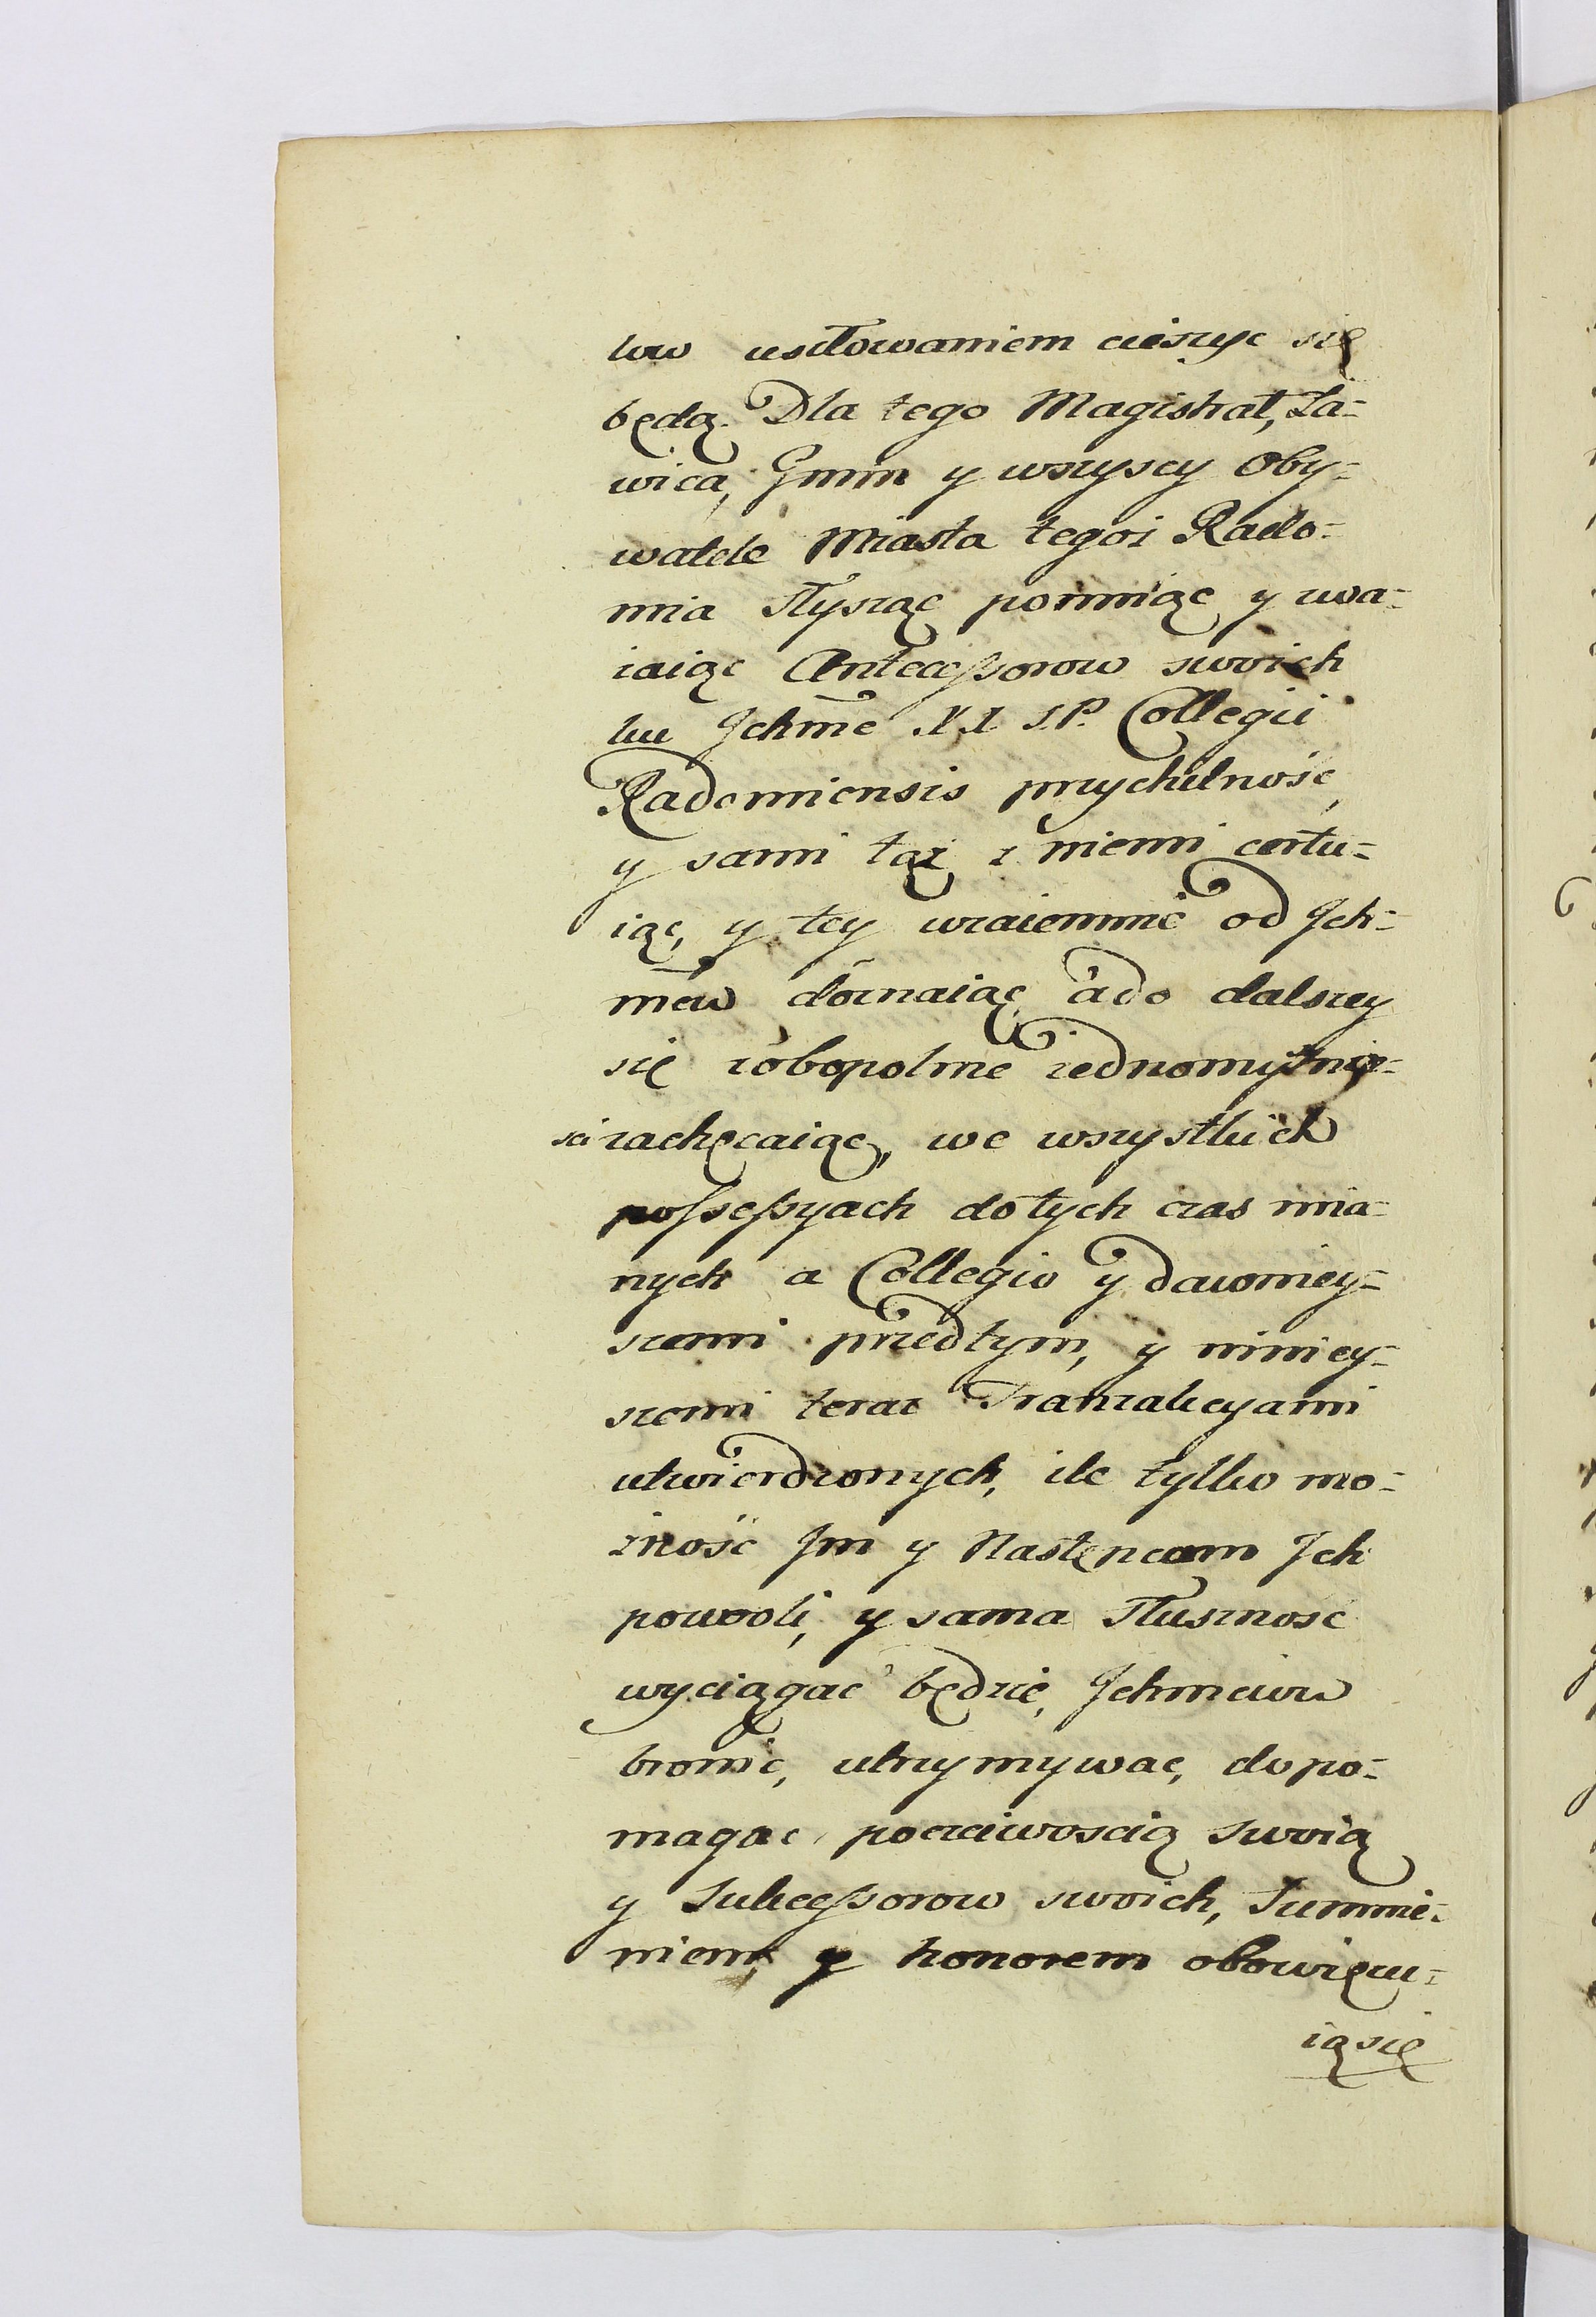 kow usiłowaniem cieszyc się
będą. Dla tego Magistrat, Ła=
wica, Gmin y wszyscy Oby=
watele Miasta tegoż Rado=
mia słysząc pomniąc y uwa=
żaiąc Antecessorow swoich
ku Jchmc XX S.P. Collegii
Radomiensis przychilność,
y sami tąż z niemi certu=
iąc, y tey wzaiemnie od Jch=
mćiow doznaiąc a do dalszey
się zobopolnie iednomyślno=
sci zachęcaiąc, we wszystkich
possessyach do tych czas mia=
nych a Collegio y dawniey=
szemi przedtym, y niniey=
szemi teraz Tranzakcyami
utwierdzonych, ile tylko mo=
żność Jm y Następcom Jch
pozwoli, y sama słuszność
wyciągać będzie, Jchmciow
bronic, utrzymywac, dopo=
magac poczciwoscią swoią
y Sukcessorow swoich, Sumnie=
niem, y honorem obowięzu=
ią się